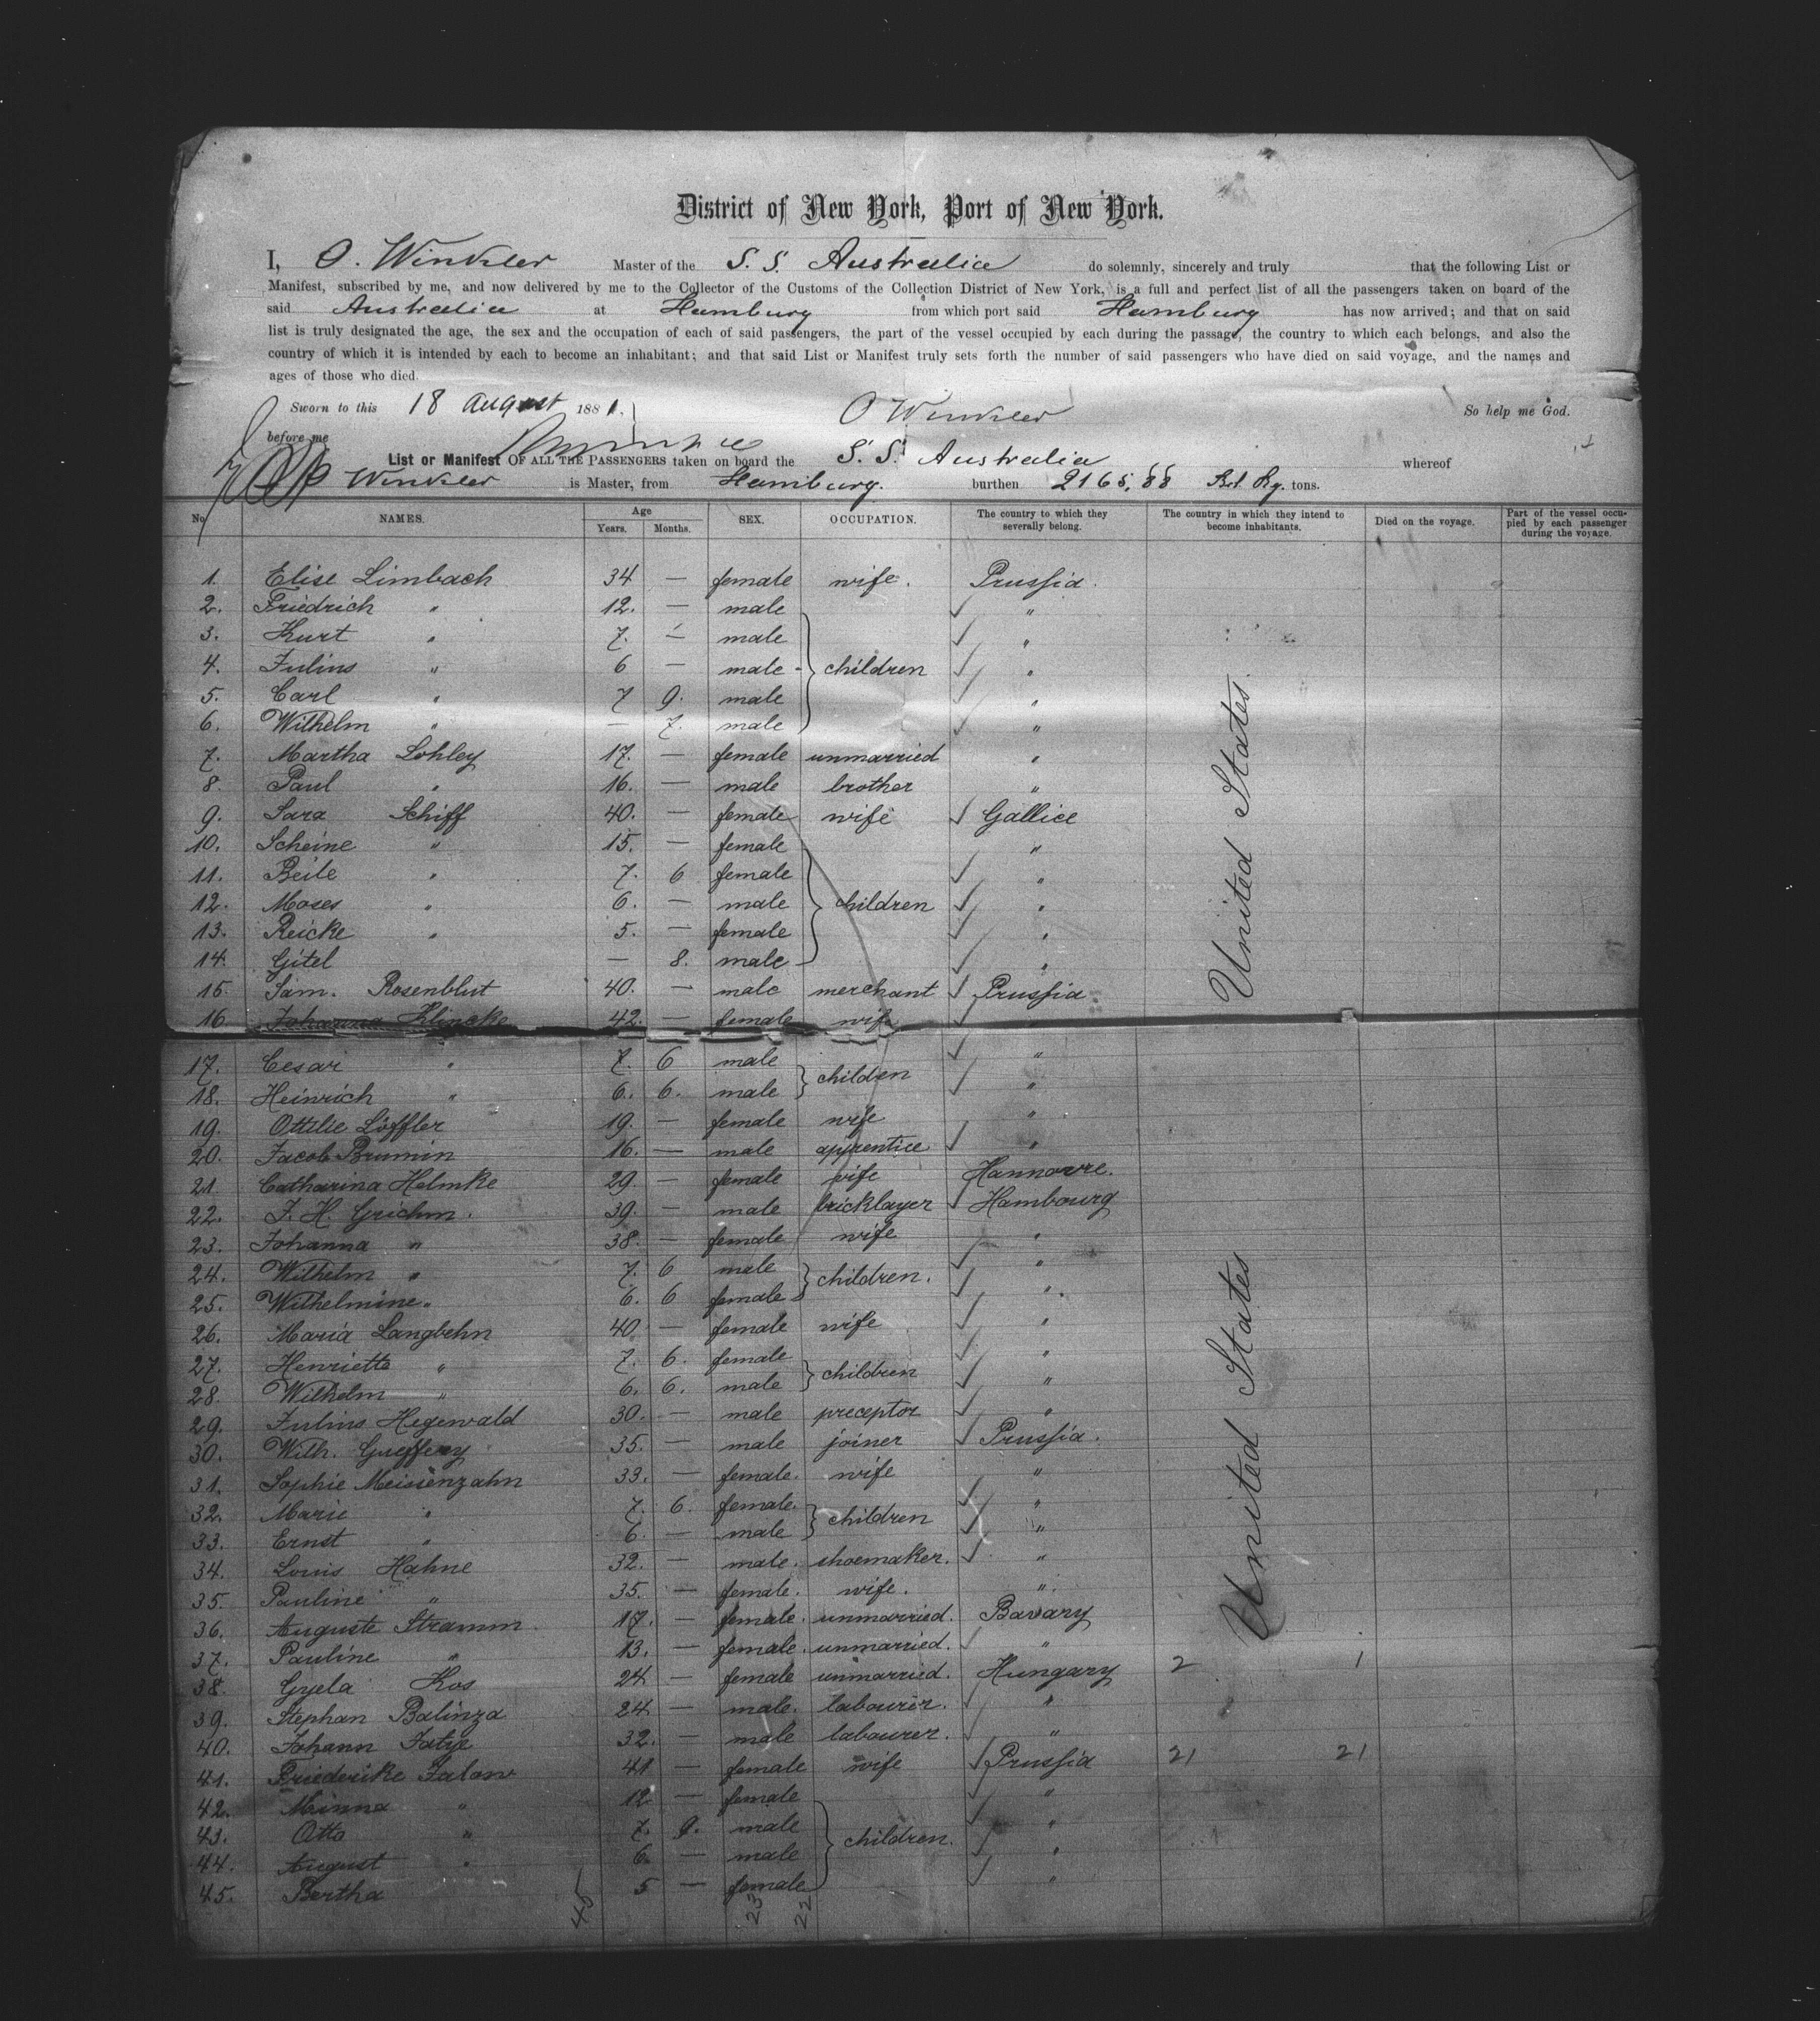 District of New York, Port of New York.
I, O. Winkler Master of the S. S. Australia do solemnly, sincerely and truly that the following List or
Manifest, subscribed by me, and now delivered by me to the Collector of the Customs of the Collection District of New York, is a full and perfect list of all the passengers taken on board of the
said Australia at Hamburg from which port said Hamburg has now arrived; and that on said
list is truly designated the age, the sex and the occupation of each of said passengers, the part of the vessel occupied by each during the passage, the country to which each belongs, and also the
country of which it is intended by each to become an inhabitant; and that said List or Manifest truly sets forth the number of said passengers who have died on said voyage, and the names and
ages of those who died.
Sworn to this 18 August 1881. O Winkler So help me God.
before me
List or Manifest OF ALL THE PASSENGERS taken on board the S. S. Australia whereof
Winkler is Master, from Hamburg. burthen 2165,88 Rg. tons.
No NAMES. Age Years. Months. SEX. OCCUPATION. The country to which they severally belong. The country in which they intend to become inhabitants. Died on the voyage. Part of the vessel occupied by each passenger during the voyage.
1. Elise Limbach 34 — female wife. Prussia.
2. Friedrich " 12. — male "
3. Kurt " 7. — male "
4. Julius " 6 — male children "
5. Carl " 7 9. male "
6. Wilhelm " — 7. male "
7. Martha Lohley 17. — female unmarried "
8. Paul " 16. — male brother "
9. Sara Schiff 40. — female wife Gallice
10. Scheine " 15. — female "
11. Beile " 7. 6 female "
12. Moses " 6. — male children "
13. Reicke " 5. — female "
14. Gitel — 8. male "
15. Sam. Rosenblut 40. — male merchant Prussia
16. Johanna Klincke 42. — female wife
17. Cesar " 7. 6 male "
18. Heinrich " 6. 6. male children "
19. Ottilie Löffler 19. — female wife "
20. Jacob Brumin 16. — male apprentice "
21. Catharina Helmke 29. — female wife Hannovre.
22. J. H. Grichm. 39. — male bricklayer Hambourg
23. Johanna " 38. — female wife "
24. Wilhelm " 7. 6 male children. "
25. Wilhelmine " 6. 6 female "
26. Maria Langbehn 40 — female wife "
27. Henriette " 7. 6. female children "
28. Wilhelm " 6. 6. male "
29. Julius Hegewald 30. — male preceptor "
30. Wilh. Gueffery 35. — male joiner Prussia.
31. Sophie Meissenzahn 33. — female. wife "
32. Marie " 7. 6. female. children "
33. Ernst " 6. — male "
34. Louis Hahne 32. — male. shoemaker. "
35. Pauline " 35. — female. wife. "
36. Auguste Stramm 17. — female. unmarried. Bavary
37. Pauline " 13. — female. unmarried. "
38. Gyela Kos 24 — female unmarried. Hungary 2 1
39. Stephan Balinza 24 — male. labourer. "
40. Johann Fatye 32. — male labourer. "
41. Friederike Falow 41 — female wife Prussia 21 21
42. Minna " 12 — female "
43. Otto " 7. 9. male children. "
44. August " 6. — male "
45. Bertha 5 — female "
United States
United States
45 23 22